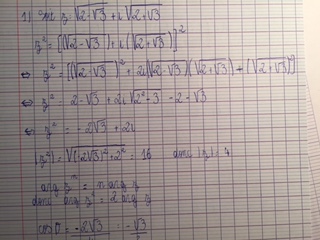 1) Soit z = √2-√3 + i √2+√3
z² = [(√2-√3) + i (√2+√3)]²
⇔ z² = [(√2-√3)² + 2i(√2-√3)(√2+√3) + (√2+√3)²]
⇔ z² = 2-√3 + 2i √2²-3 - 2-√3
⇔ z² = -2√3 + 2i
|z²| = √(-2√3)² + 2² = 16 donc |z| = 4
arg zⁿ = n arg z
donc arg z² = 2 arg z
cos θ = -2√3 = -√3